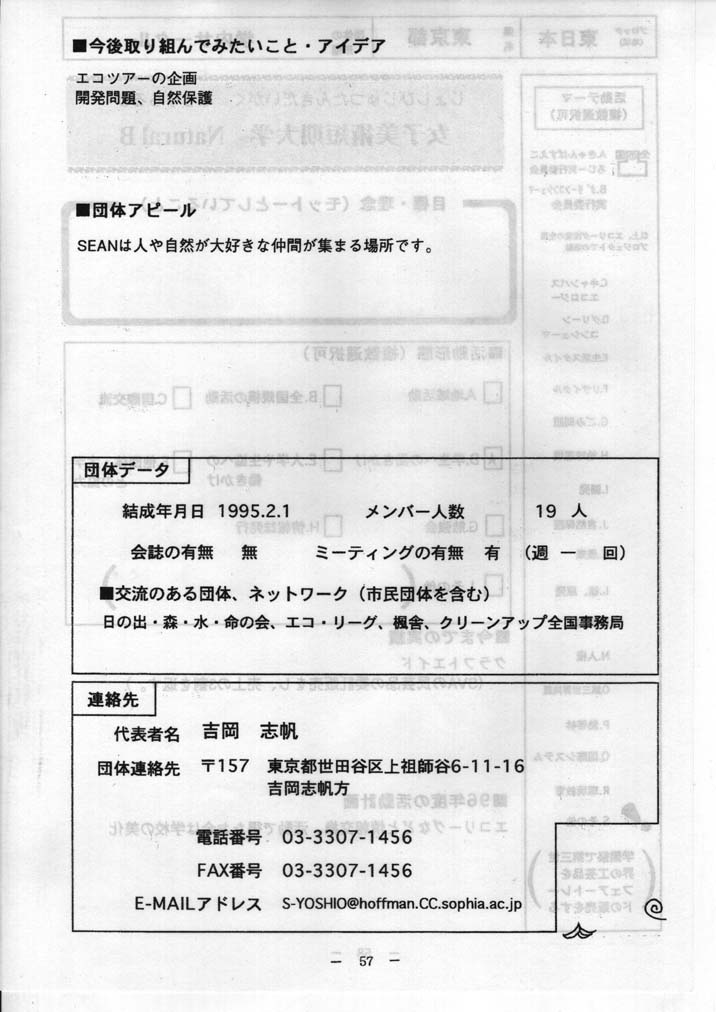 ■今後取り組んでみたいこと・アイデア
エコツアーの企画
開発問題、自然保護
■団体アピール
SEANは人や自然が大好きな仲間が集まる場所です。
団体データ
結成年月日 1995.2.1 メンバー人数 19 人
会誌の有無 無 ミーティングの有無 有 (週 一 回)
■交流のある団体、ネットワーク(市民団体を含む)
日の出・森・水・命の会、エコ・リーグ、楓舎、クリーンアップ全国事務局
連絡先
代表者名 吉岡 志帆
団体連絡先 〒157 東京都世田谷区上祖師谷6-11-16
吉岡志帆方
電話番号 03-3307-1456
FAX番号 03-3307-1456
E-MAILアドレス S-YOSHIO@hoffman.CC.sophia.ac.jp
― 57 ―